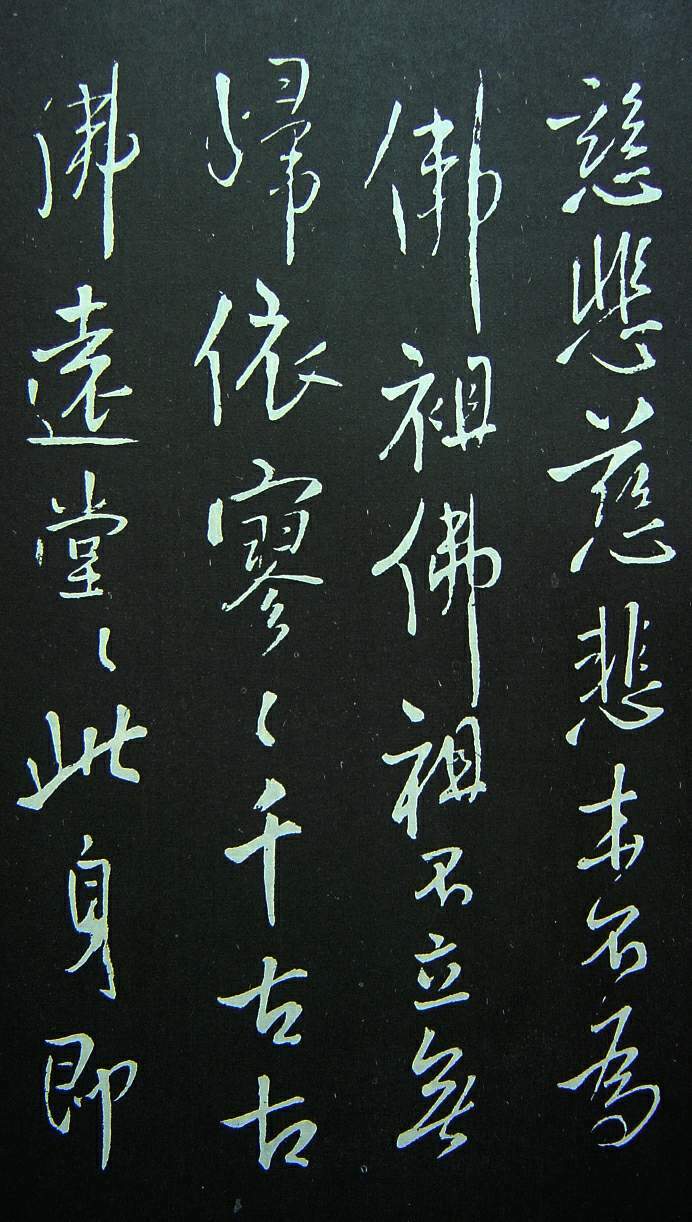 慈悲慈悲未名為
佛祖佛祖不立無
歸依寥〻千古古
佛遠堂〻此身即